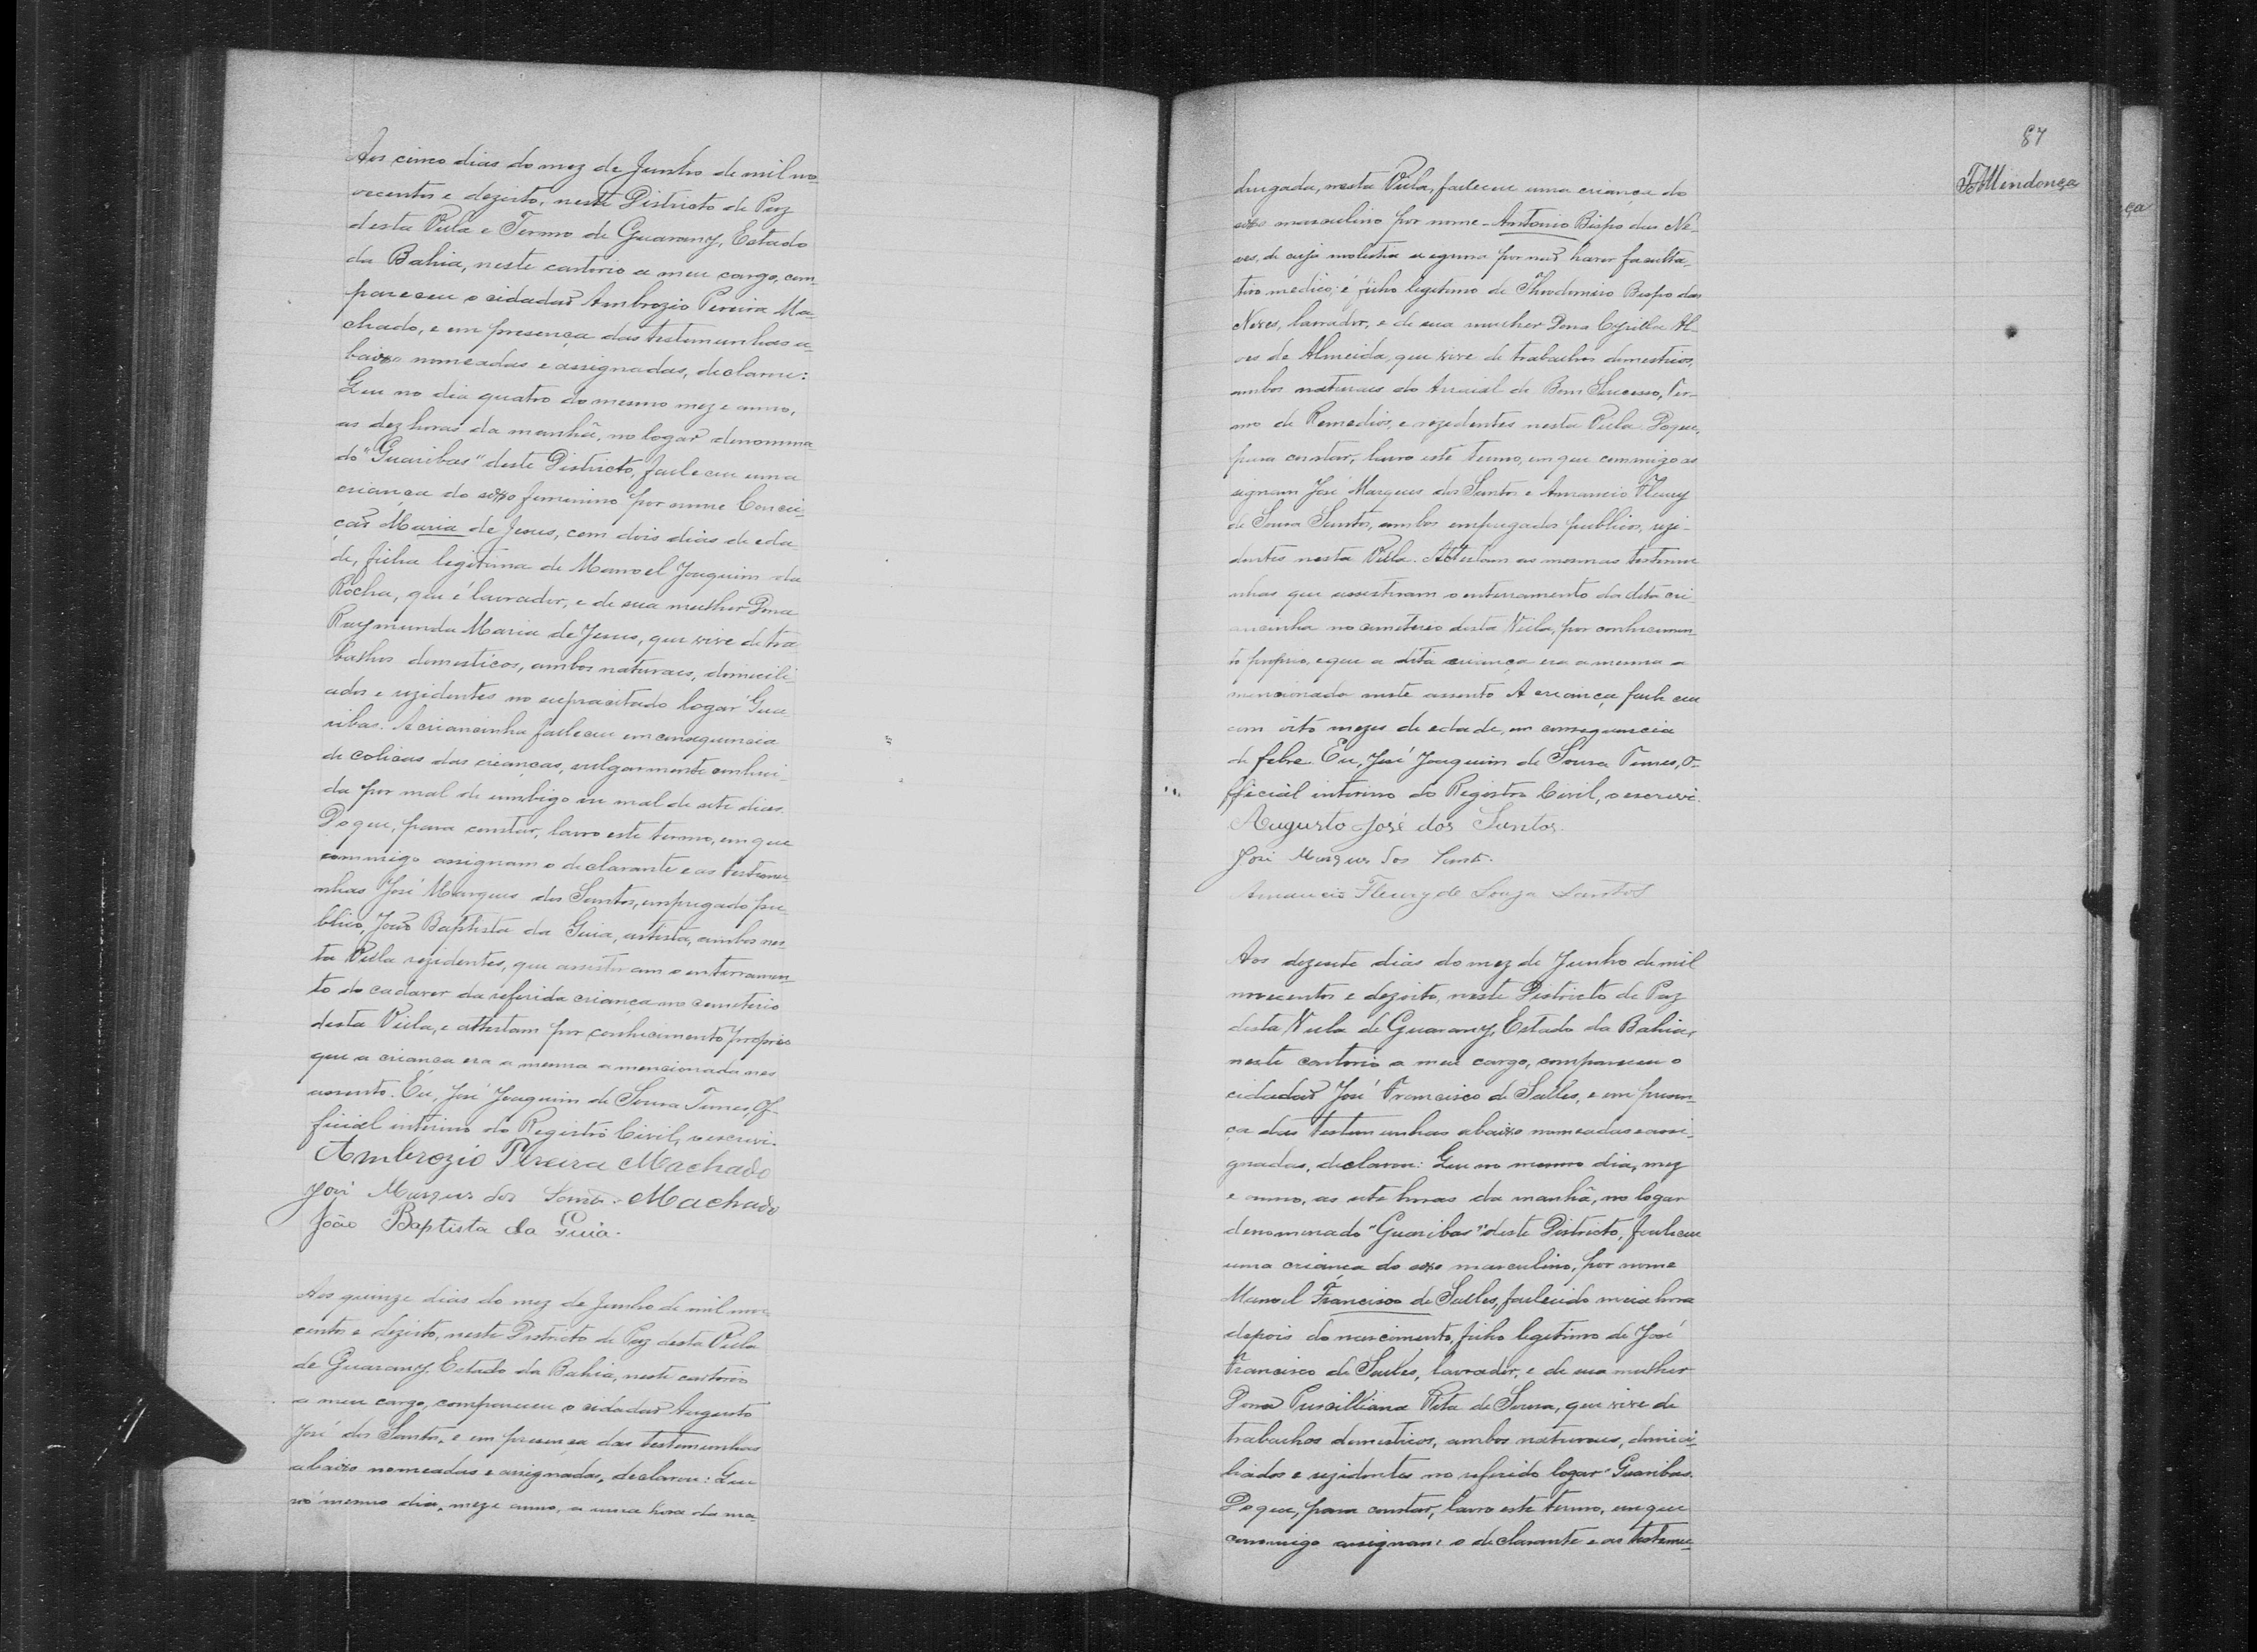 Aos cinco dias do mez de Junho de mil no-
vecentos e dezoito, neste Districto de Paz
desta Villa e Termo de Guarany, Estado
da Bahia, neste cartorio a meu cargo, com-
pareceu o cidadão Ambrozio Pereira Ma-
chado, e em presença das testemunhas a-
baixo nomeadas e assignadas, declarou:
Que no dia quatro do mesmo mez e anno,
as dez horas da manhã, no logar denomina-
do "Guaribas" deste Districto, falleceu uma
criança do sexo feminino por nome Concei-
ção Maria de Jesus, com dois dias de eda-
de, filha legitima de Manoel Joaquim da
Rocha, que é lavrador, e de sua mulher Dona
Raymunda Maria de Jesus, que vive de tra-
balhos domesticos, ambos naturaes, domicili-
ados e rezidentes no supracitado logar Gua-
ribas. A criancinha falleceu em consequencia
de colicas das crianças, vulgarmente conheci-
da por mal de umbigo ou mal de sete dias.
Do que, para constar, lavro este termo, em que
commigo assignam o declarante e as testemu-
nhas José Marques dos Santos, empregado pu-
blico, João Baptista da Guia, artista, ambos nes-
ta Villa rezidentes, que assistiram o enterramen-
to do cadaver da referida criança no cemiterio
desta Villa, e attestam por conhecimento proprio
que a criança era a mesma a mencionada nes
assento. Eu, José Joaquim de Souza Tunes, Of-
ficial interino do Registro Civil, o escrevi.
Ambrozio Pereira Machado
José Marques dos Santos. Machado
João Baptista da Guia.
Aos quinze dias do mez de Junho de mil nove-
centos e dezoito, neste Districto de Paz desta Villa
de Guarany, Estado da Bahia, neste cartorio
a meu cargo, compareceu o cidadão Augusto
José dos Santos, e em presença das testemunhas
abaixo nomeadas e assignadas, declarou: Que
no mesmo dia, mez e anno, a uma hora da ma-
87
Mendonça
drugada, nesta Villa, falleceu uma criança do
sexo masculino por nome - Antonio Bispo das Ne-
ves, de cuja molestia por não haver faculta-
tivo medico; é filho legitimo de Theodomiro Bispo das
Neves, lavrador, e de sua mulher Dona Cyrilla Al-
ves de Almeida, que vive de trabalhos domesticos,
ambos naturaes do Arraial de Bom Successo, Ter-
mo de Remedios, e rezidentes nesta Villa. Do que,
para constar, lavro este termo, em que commigo as
signam José Marques dos Santos e Amancio Fleury
de Souza Santos, ambos empregados publicos, rezi-
dentes nesta Villa. Attestam as mesmas testemu
nhas que assistiram o enterramento da dita cri
ancinha no cemiterio desta Villa, por conhecimen-
to proprio, e que a dita criança era a mesma a
mencionada neste assento. A criança falleceu
com oito mezes de edade, em consequencia
de febre. Eu, José Joaquim de Souza Tunes, O-
fficial interino do Registro Civil, o escrevi.
Augusto José dos Santos.
José Marques dos Santos.
Amancio Fleury de Souza Santos
Aos dezesete dias do mez de Junho de mil
novecentos e dezoito, neste Districto de Paz
desta Villa de Guarany, Estado da Bahia,
neste cartorio a meu cargo, compareceu o
cidadão José Francisco de Salles, e em presen-
ça das testemunhas abaixo nomeadas e assi-
gnadas, declarou: Que no mesmo dia, mez
e anno, as sete horas da manhã, no logar
denominado "Guaribas" deste Districto, falleceu
uma criança do sexo masculino, por nome
Manoel Francisco de Salles, fallecido meia hora
depois do nascimento, filho legitimo de José
Francisco de Salles, lavrador, e de sua mulher
Dona Priscilliana Rita de Souza, que vive de
trabalhos domesticos, ambos naturaes, domici-
liados e rezidentes no referido logar "Guaribas.
Do que, para constar, lavro este termo, em que
commigo assignam: o declarante e as testemu-